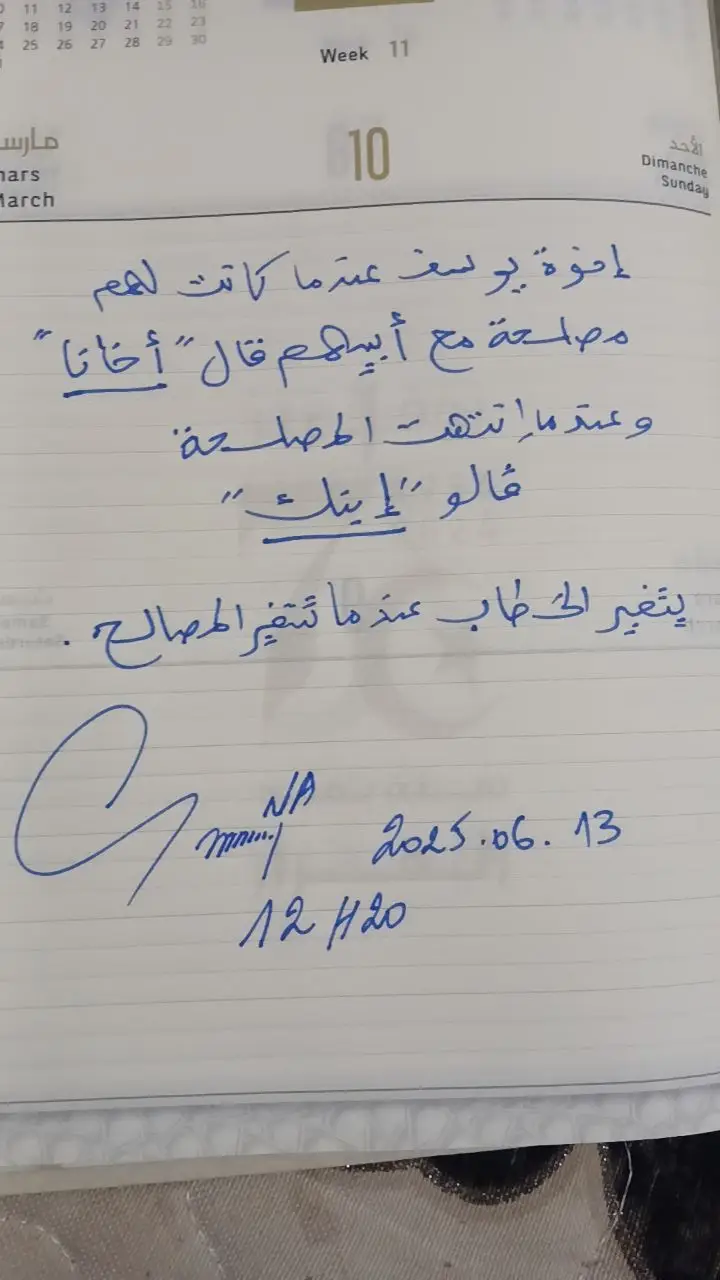 11 12 13 14 15 16
18 19 20 21 22 23
25 26 27 28 29 30
Week 11
مارس
mars
March
10
الأحد
Dimanche
Sunday
إخوة يوسف عندما كانت لهم
مصلحة مع أبيهم قال "أخانا"
وعندما إنتهت المصلحة
قالو "إبنك"
يتغير الخطاب عندما تتغير المصالح.
NA
2025.06.13
12H20